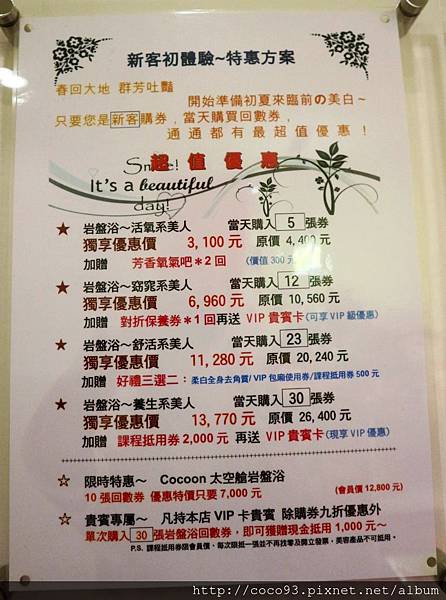 新客初體驗~特惠方案
春回大地 群芳吐豔
開始準備初夏來臨前の美白~
只要您是新客購券,當天購買回數券,
通通都有最超值優惠!
超值優惠
It's a beautiful
day!
★ 岩盤浴~活氧系美人 當天購入 5 張券
獨享優惠價 3,100 元 原價 4,400 元
加贈 芳香氧氣吧*2 回 (價值 300 元)
★ 岩盤浴~窈窕系美人 當天購入 12 張券
獨享優惠價 6,960 元 原價 10,560 元
加贈 對折保養券*1 回再送 VIP 貴賓卡(可享 VIP 級優惠)
★ 岩盤浴~舒活系美人 當天購入 23 張券
獨享優惠價 11,280 元 原價 20,240 元
加贈 好禮三選二:柔白全身去角質/VIP 包廂使用券/課程抵用券 500 元
★ 岩盤浴~養生系美人 當天購入 30 張券
獨享優惠價 13,770 元 原價 26,400 元
加贈 課程抵用券 2,000 元 再送 VIP 貴賓卡(現享 VIP 優惠)
☆ 限時特惠~ Cocoon 太空艙岩盤浴
10 張回數券 優惠特價只要 7,000 元 (會員價 12,800 元)
☆ 貴賓專屬~ 凡持本店 VIP 卡貴賓 除購券九折優惠外
單次購入 30 張岩盤浴回數券,即可獲贈現金抵用 1,000 元~
P.S. 課程抵用券限會員價,每次限抵一張並不再找零及開立發票,美容產品不可抵用。
http://coco93.pixnet.net/album